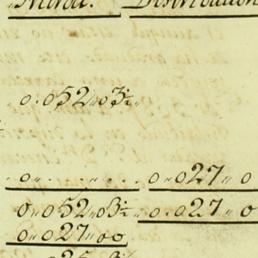 Distribution
0.,052,,03½,,
0,, ,, ,, 0,,027,, 0
0,,052,,03½ 0,,027,, 0
0,,027,,00